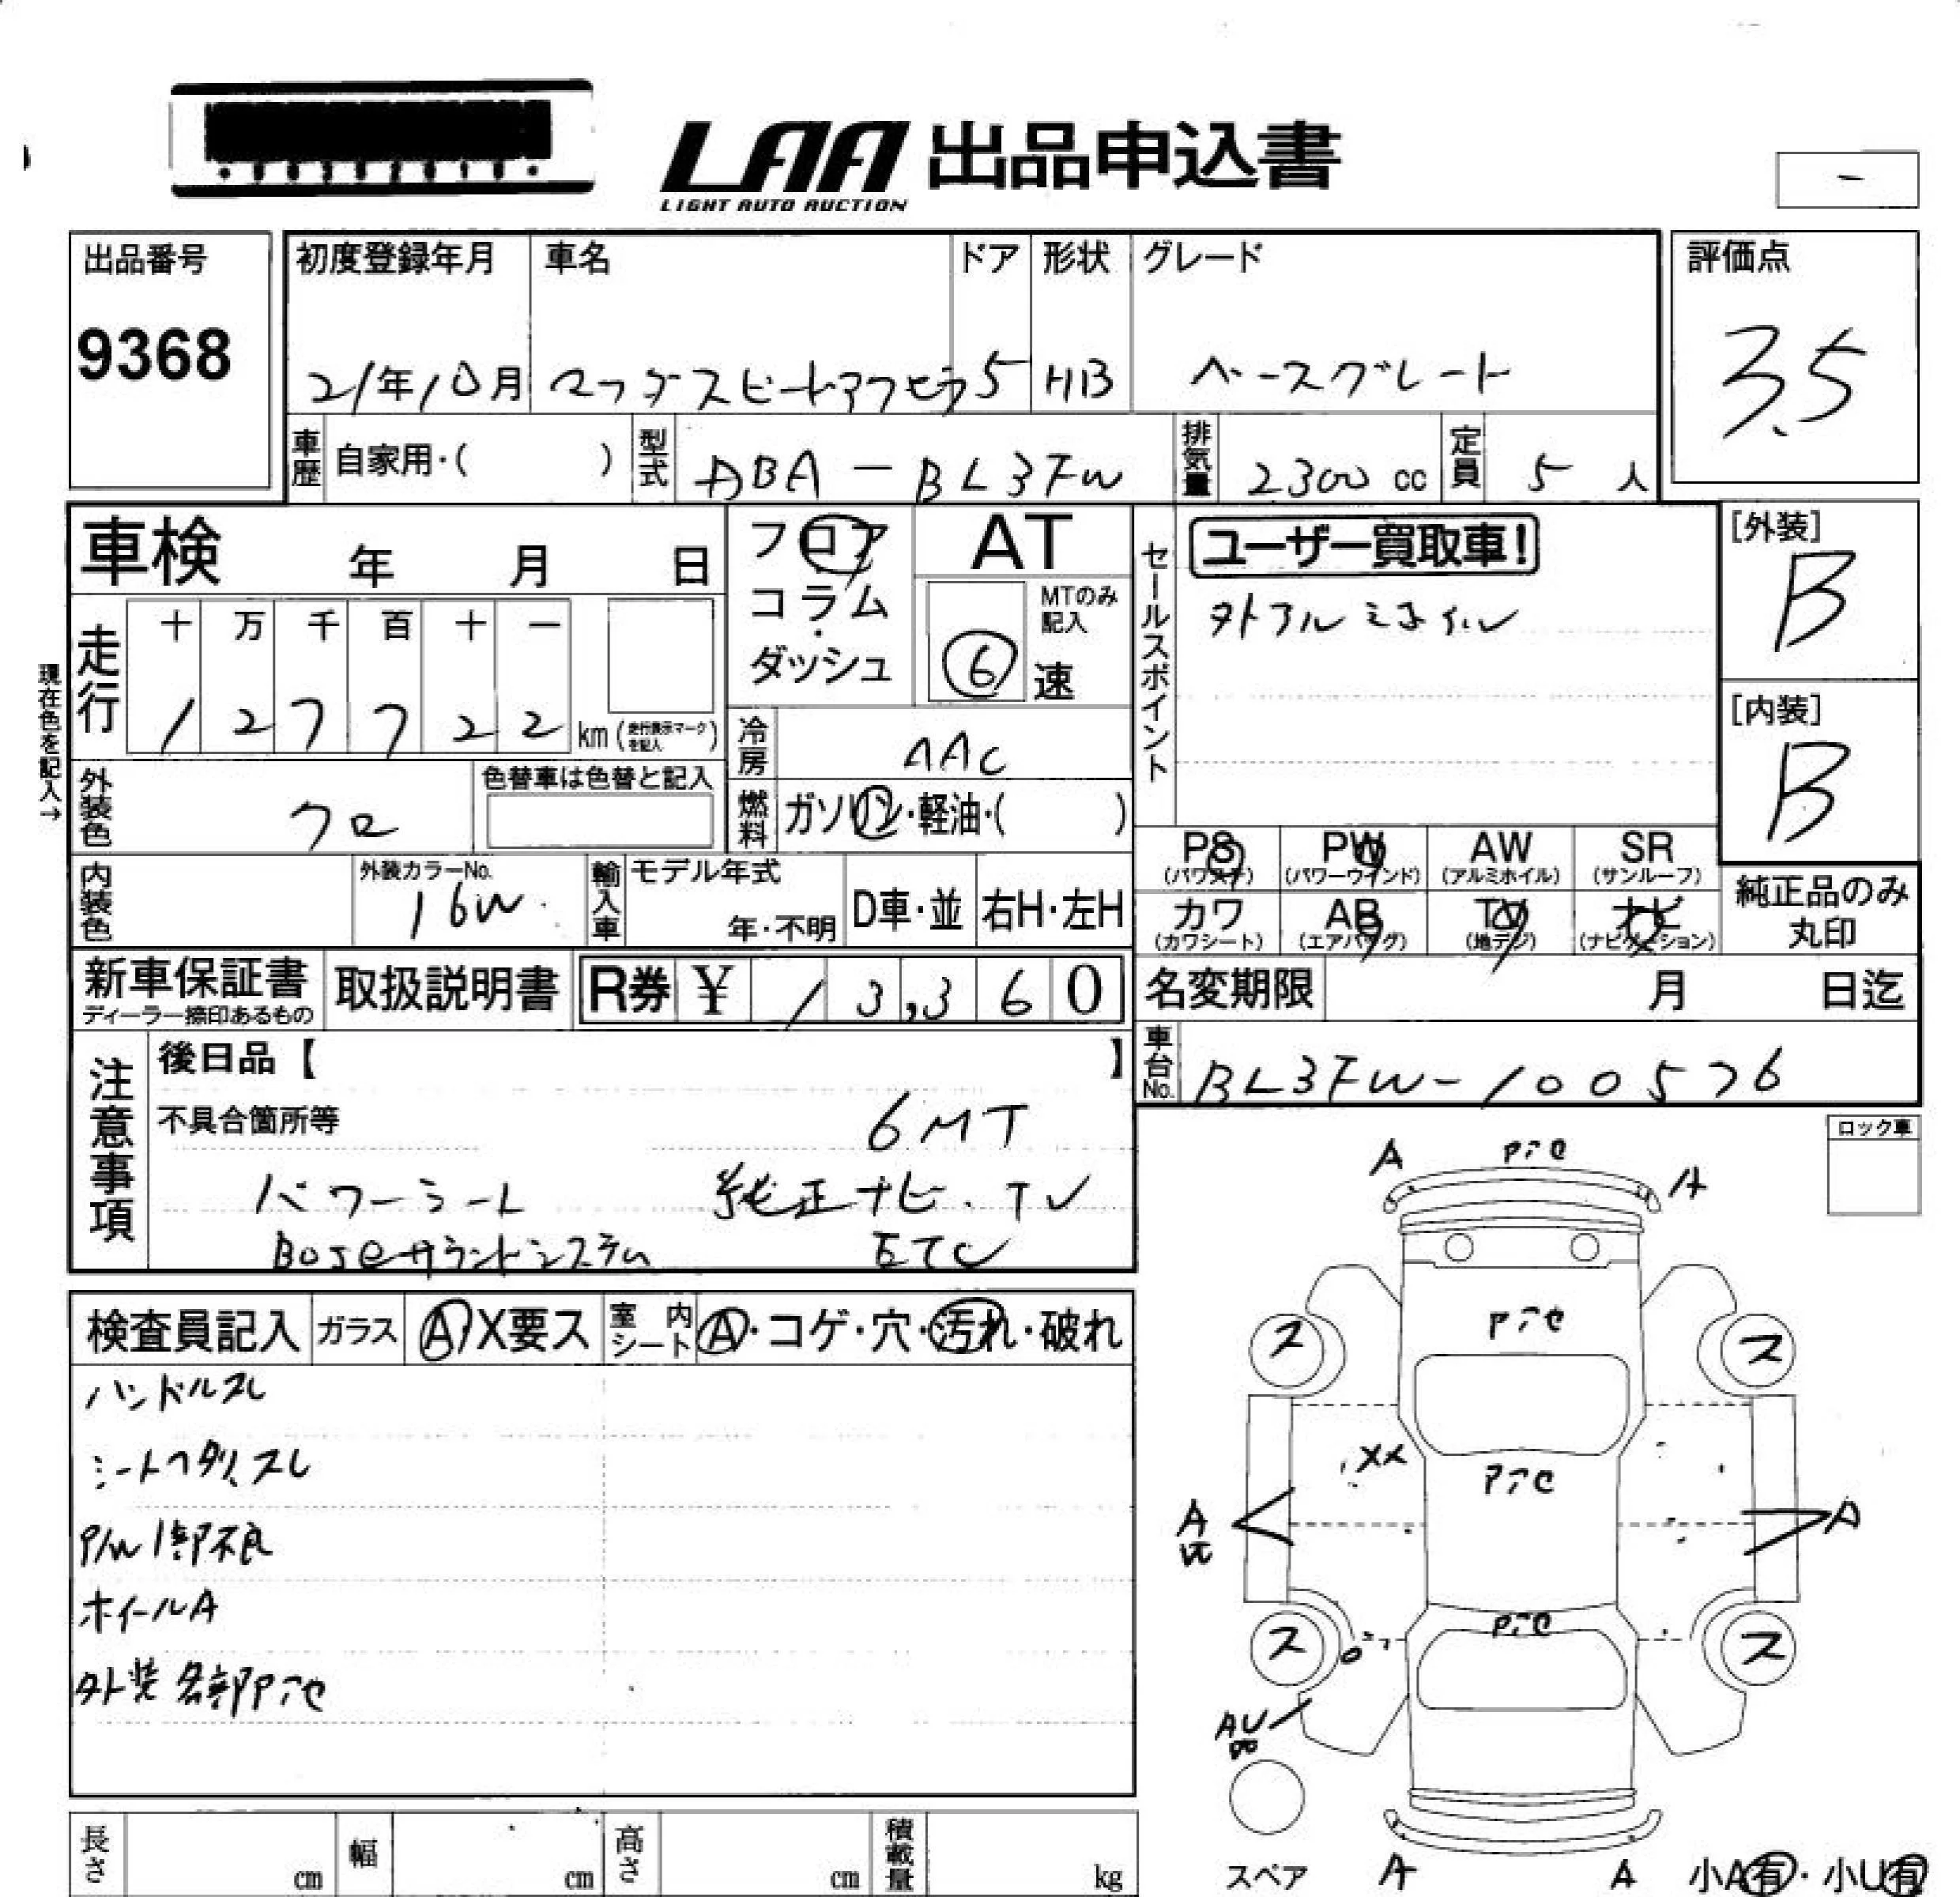 LAA 出品申込書
LIGHT AUTO AUCTION
-
出品番号
9368
初度登録年月 車名 ドア 形状 グレード
21年10月 マツダスピードアクセラ 5 HB ベースグレード
評価点
3.5
車歴 自家用・( ) 型式 DBA-BL3FW 排気量 2300 cc 定員 5 人
車検 年 月 日
フロア
コラム
・
ダッシュ
AT
MTのみ記入
6 速
セールスポイント
ユーザー買取車!
外アルミホイル
[外装]
B
[内装]
B
現在色を記入→
走行 十 万 千 百 十 一
1 2 7 7 2 2 km (走行表示マークを記入)
冷房 AAC
外装色 クロ 色替車は色替と記入
燃料 ガソリン・軽油・( )
内装色 外装カラーNo. 16W
輸入車 モデル年式 年・不明 D車・並 右H・左H
PS (パワステ) PW (パワーウインド) AW (アルミホイル) SR (サンルーフ)
カワ (カワシート) AB (エアバッグ) TV (地デジ) ナビ (ナビゲーション)
純正品のみ
丸印
新車保証書 ディーラー捺印あるもの 取扱説明書 R券 ¥ 13,360
名変期限 月 日迄
車台No. BL3FW-100576
注意事項
後日品【 】
不具合箇所等 6MT
パワーシート 純正ナビ・TV
Boseサウンドシステム ETC
ロック車
検査員記入 ガラス A X要ス 室内シート A・コゲ・穴・汚れ・破れ
ハンドルスレ
シートヘタリ、スレ
P/W 1部不良
ホイールA
外装各部P
A A
ス ス
XX
A A
ス ス
AU
スペア A A 小A有・小U有
長さ cm 幅 cm 高さ cm 積載量 kg